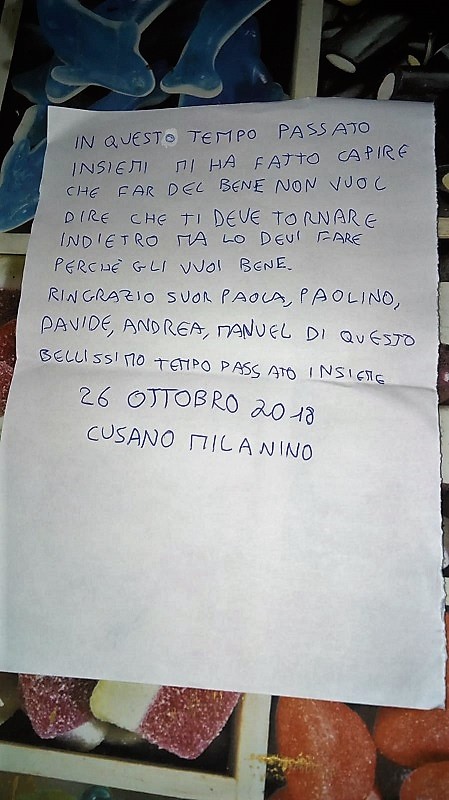 IN QUESTO TEMPO PASSATO
INSIEMI MI HA FATTO CAPIRE
CHE FAR DEL BENE NON VUOL
DIRE CHE TI DEVE TORNARE
INDIETRO MA LO DEVI FARE
PERCHÈ GLI VUOI BENE.
RINGRAZIO SUOR PAOLA, PAOLINO,
DAVIDE, ANDREA, MANUEL DI QUESTO
BELLISSIMO TEMPO PASSATO INSIEME
26 OTTOBRO 2018
CUSANO MILANINO